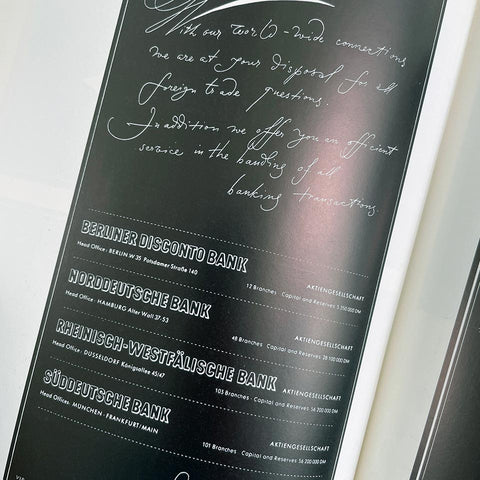 With our world-wide connections
we are at your disposal for all
foreign trade questions.
In addition we offer you an efficient
service in the handling of all
banking transactions.
BERLINER DISCONTO BANK
AKTIENGESELLSCHAFT
Head Office: BERLIN W 35 Potsdamer Straße 140
12 Branches · Capital and Reserves 5 250 000 DM
NORDDEUTSCHE BANK
AKTIENGESELLSCHAFT
Head Office: HAMBURG Alter Wall 37-53
48 Branches · Capital and Reserves 28 100 000 DM
RHEINISCH-WESTFÄLISCHE BANK
AKTIENGESELLSCHAFT
Head Office: DÜSSELDORF Königsallee 45/47
105 Branches · Capital and Reserves 56 200 000 DM
SÜDDEUTSCHE BANK
AKTIENGESELLSCHAFT
Head Offices: MÜNCHEN · FRANKFURT/MAIN
101 Branches · Capital and Reserves 56 200 000 DM